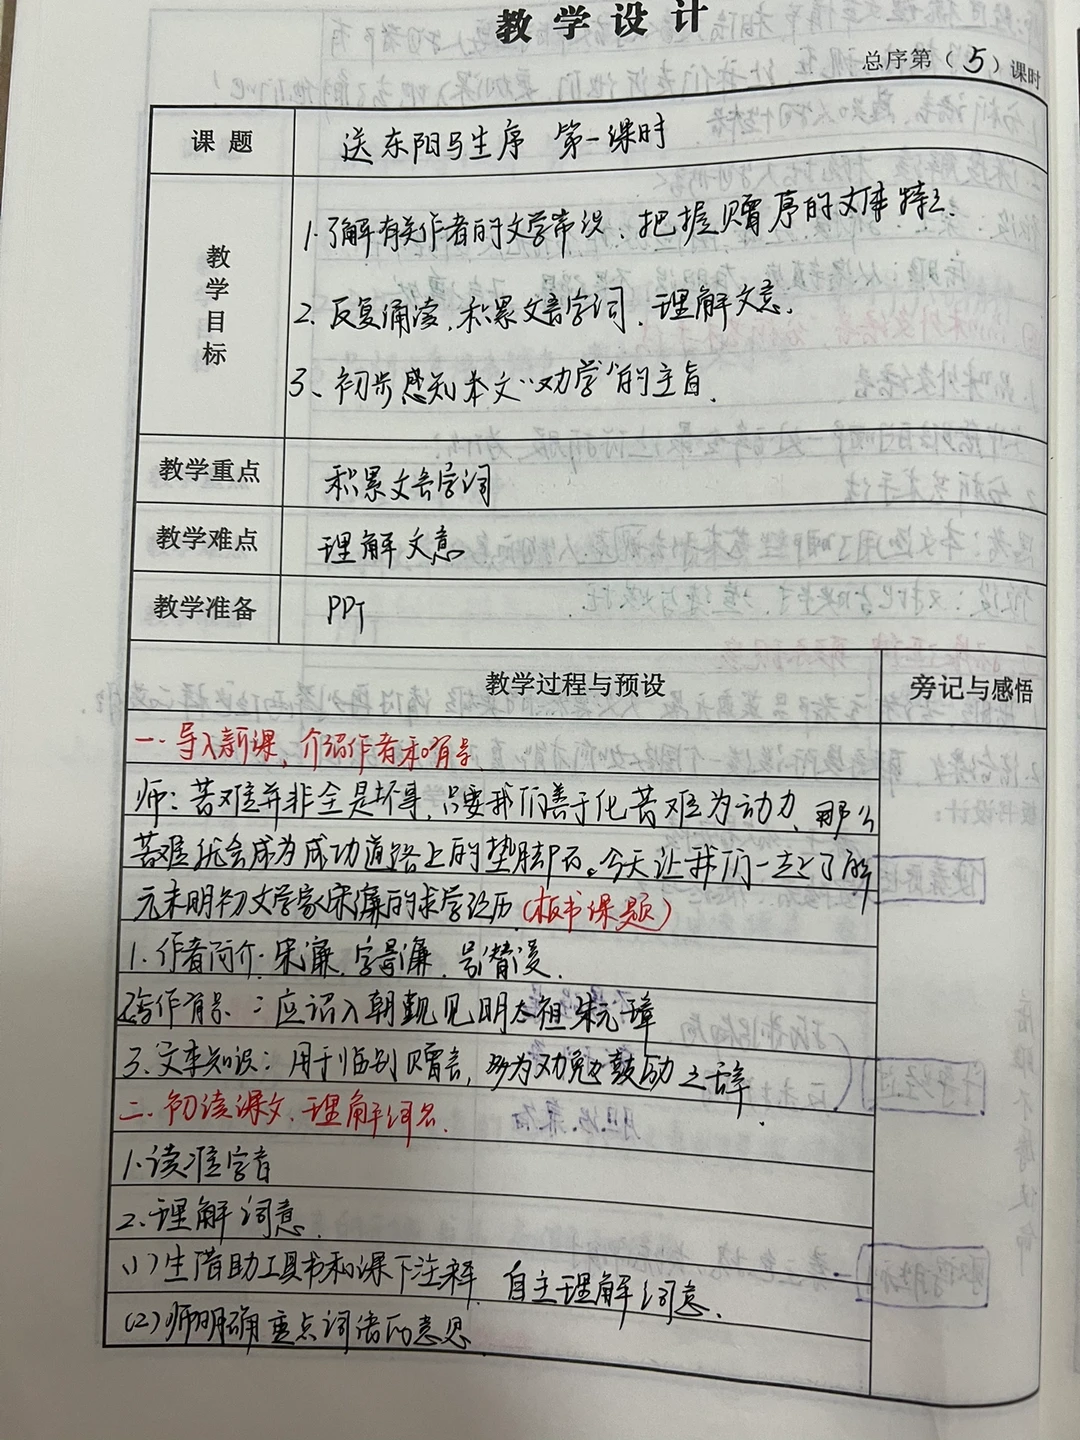 教学设计
总序第（5）课时
课题 送东阳马生序 第一课时
教学目标
1.了解有关作者的文学常识、把握赠序的文体特点.
2.反复诵读,积累文言字词,理解文意.
3、初步感知本文“劝学”的主旨.
教学重点 积累文言字词
教学难点 理解文意
教学准备 PPT
教学过程与预设 旁记与感悟
一.导入新课,介绍作者和背景
师:苦难并非全是坏事,只要我们善于化苦难为动力,那么
苦难就会成为成功道路上的垫脚石。今天让我们一起了解
元末明初文学家宋濂的求学经历(板书课题)
1.作者简介:宋濂,字景濂,号潜溪.
2.写作背景:应诏入朝觐见明太祖朱元璋
3.文体知识:用于临别赠言,多为劝勉鼓励之辞.
二.初读课文,理解词句.
1.读准字音
2.理解词意
(1)生借助工具书和课下注释,自主理解词意.
(2)师明确重点词语的意思